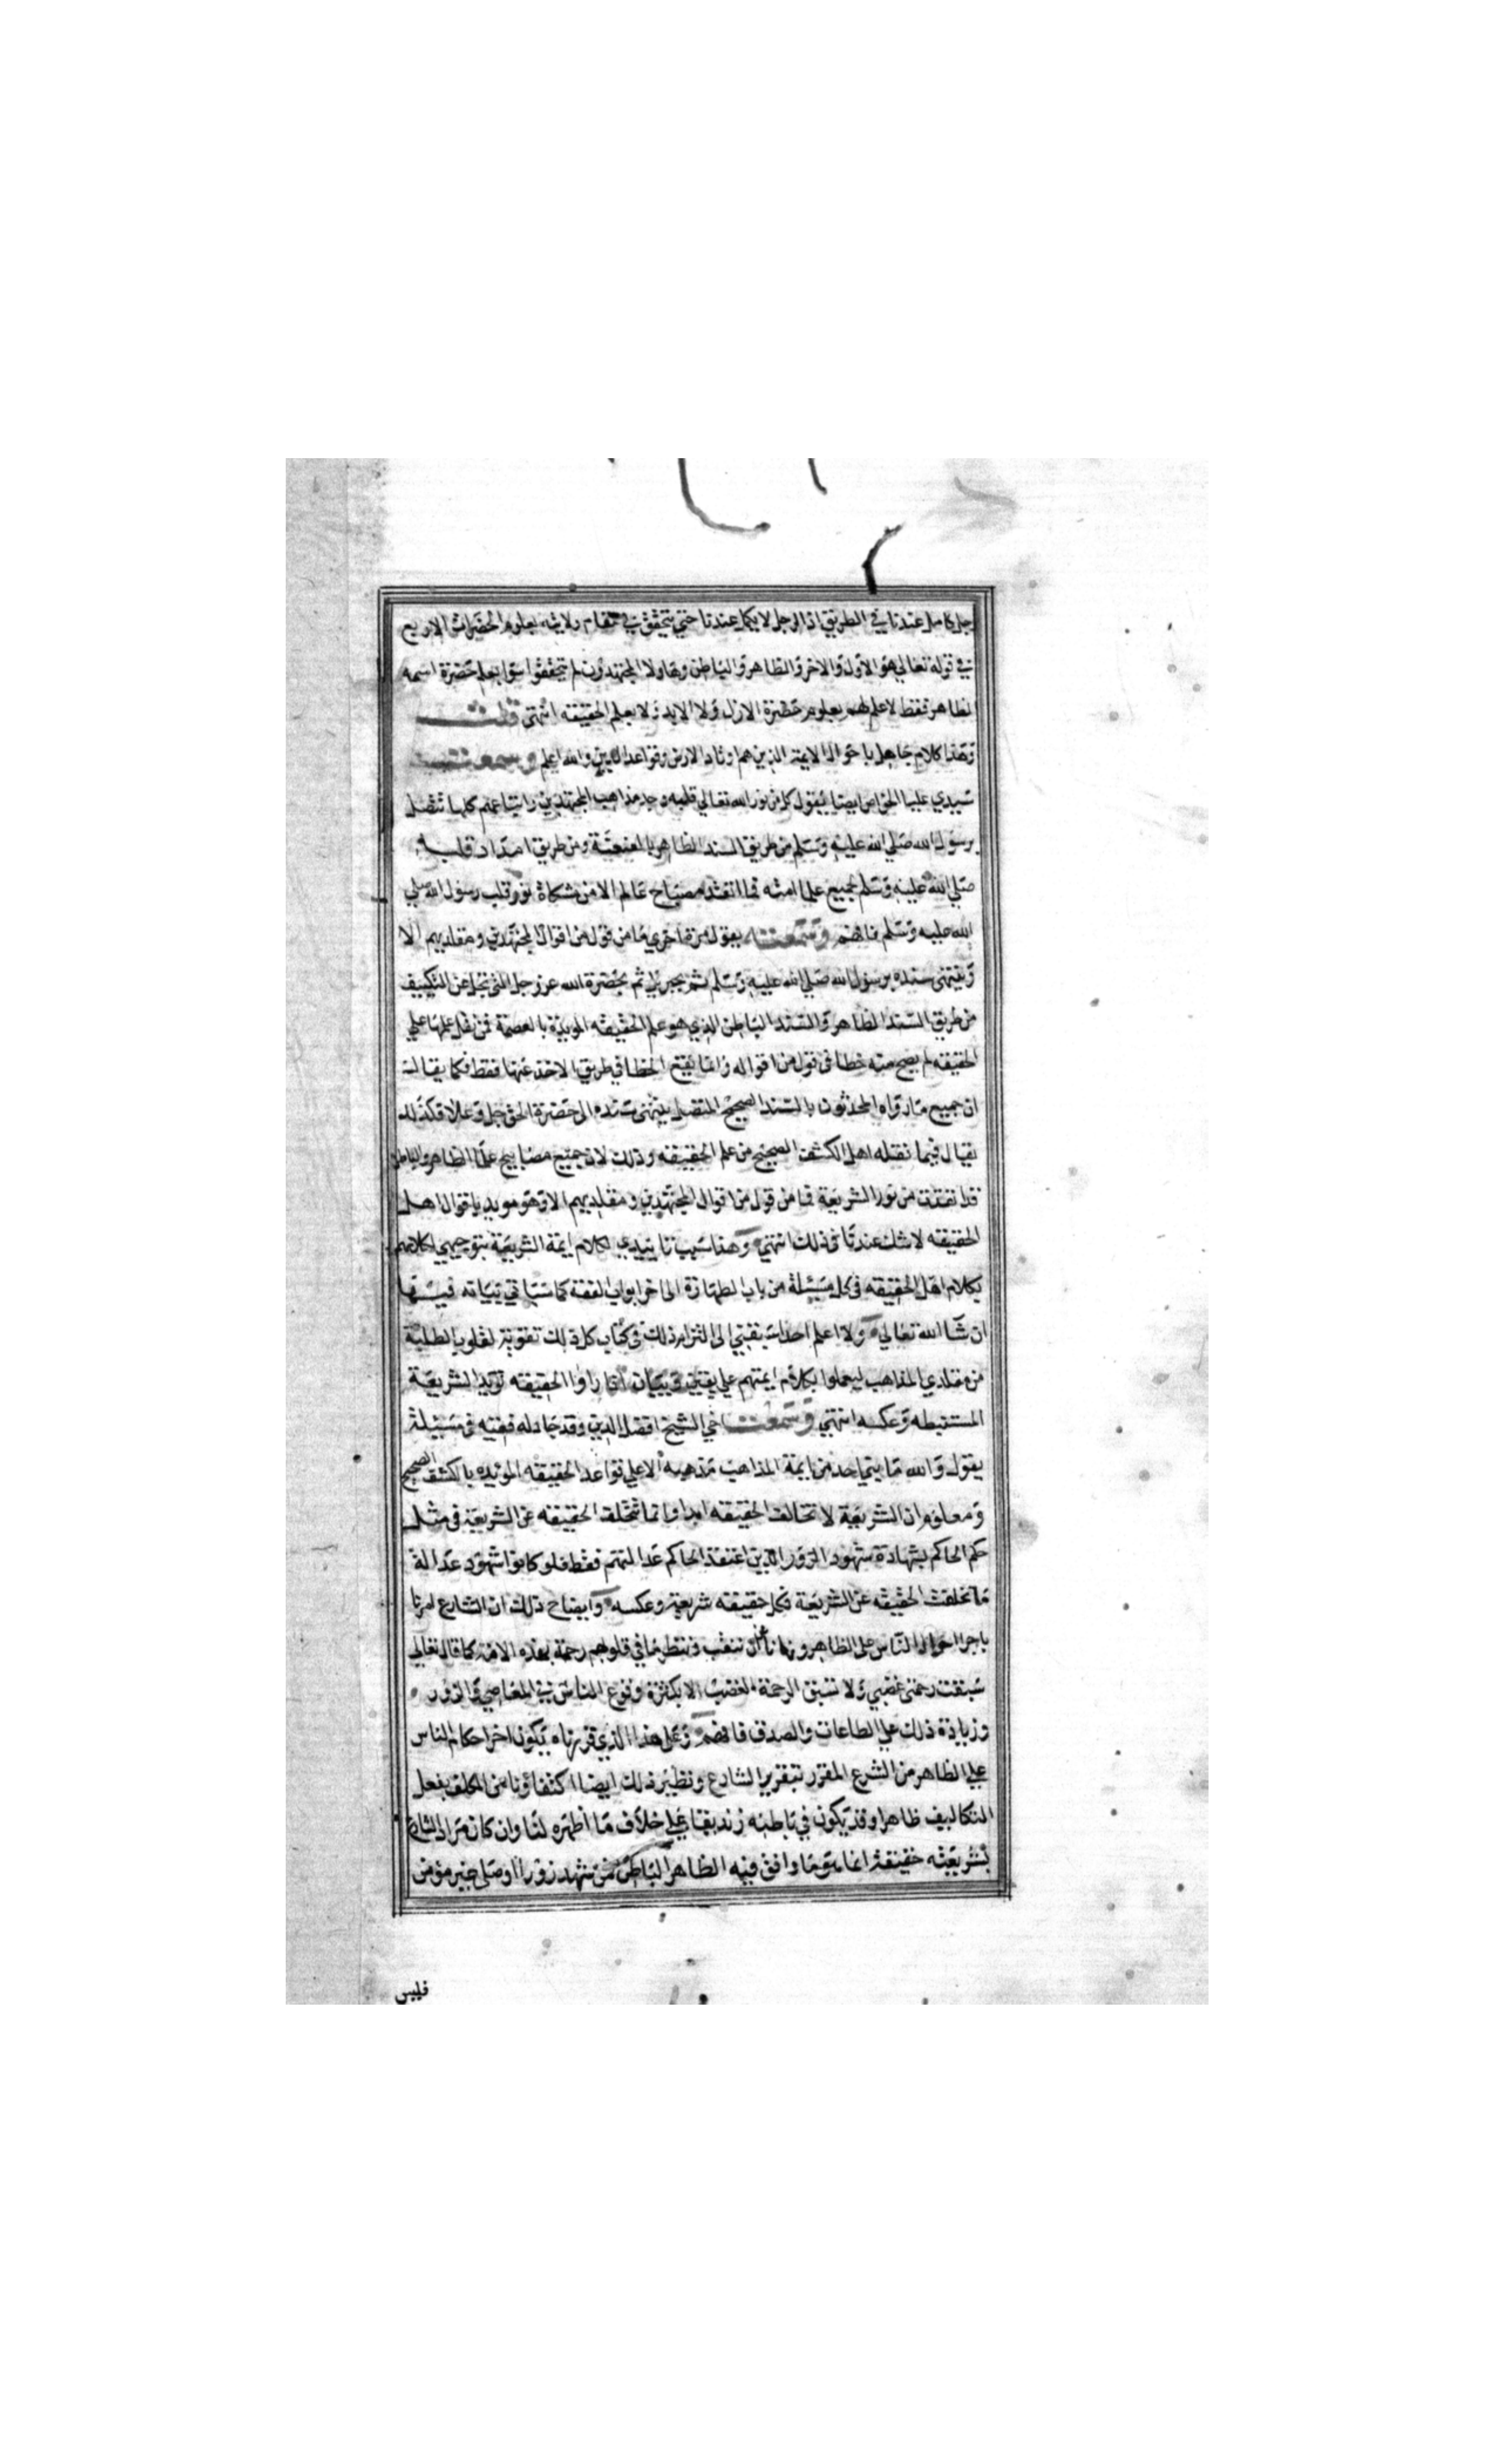 جل كامل عندنا في الطريق اذ الرجل لا يكمل عندنا حتى يتحقق في مقام ولايته بعلوم الحضرات الاربع
في قوله تعالي هو الاول والاخر والظاهر والباطن وهاولا المجتهدون لم يتحققوا سوا بعلم حضرة اسمه
الظاهر فقط لا علم لهم بعلوم حضرة الازل ولا الابد ولا بعلم الحقيقه انتهى قلت
وهذا كلام جاهل باحوال الايمة الذين هم اوتاد الارض وقواعد الدين والله اعلم وسمعت
سيدي عليا الخواص ايضا يقول كل من نور الله تعالي قلبه وجد مذاهب المجتهدين واتباعهم كلها تتصل
برسول الله صلي الله عليه وسلم من طريق السند الظاهر بالعنعنة ومن طريق امداد قلبه
صلي الله عليه وسلم لجميع علما امته فما اتقد مصباح عالم الا من مشكاة نور قلب رسول الله صلي
الله عليه وسلم فافهم وسمعته يقول مرة اخري ما من قول من اقوال المجتهدين ومقلديهم الا
وينتهي سنده برسول الله صلي الله عليه وسلم ثم بجبريل ثم بحضرة الله عز وجل التي تجل عن التكييف
من طريق السند الظاهر والسند الباطن الذي هو علم الحقيقه المويدة بالعصمة فمن نقل علمها علي
الحقيقه لم يصح منه خطا في قول من اقواله وانما يقع الخطا في طريق الاخذ عنها فقط فكما يقال
ان جميع ما رواه المحدثون بالسند الصحيح المتصل ينتهى سنده الى حضرة الحق جل وعلا فكذلك
يقال فيما نقله اهل الكشف الصحيح من علم الحقيقه وذلك لان جميع مصابيح علما الظاهر والباطن
قد اتقدت من نور الشريعة فما من قول من اقوال المجتهدين ومقلديهم الا وهو مويد باقوال اهل
الحقيقه لا شك عندنا في ذلك انتهي وهذا سبب تاييدي لكلام ايمة الشريعة بتوجيهي لكلامهم
بكلام اهل الحقيقه في كل مسئلة من باب الطهارة الى اخر ابواب الفقه كما سياتي بيانه فيها
ان شا الله تعالي ولا اعلم احدا سبقني الى التزام ذلك في كتاب كل ذلك تقوية لقلوب الطلبة
من مقلدي المذاهب ليعملوا بكلام ايمتهم علي يقين وبيان اذا راوا الحقيقه تويد الشريعة
المستنبطه وعكسه انتهي وسمعت اخي الشيخ افضل الدين وقد جادله فقيه في مسئلة
يقول والله ما بني احد من ايمة المذاهب مذهبه الا علي قواعد الحقيقه المويده بالكشف الصحيح
ومعلوم ان الشريعة لا تخالف الحقيقه ابدا وانما تتخلف الحقيقه عن الشريعة في مثل
حكم الحاكم بشهادة شهود الزور الذين اعتقد الحاكم عدالتهم فقط فلو كانوا شهود عدالة
ما تخلفت الحقيقه عن الشريعة فكل حقيقه شريعة وعكسه وايضاح ذلك ان الشارع امرنا
باجرا احوال الناس على الظاهر ونهانا عن ان ننقب وننظر ما في قلوبهم رحمة بهذه الامة كما قال تعالي
سبقت رحمتي غضبي ولا تسبق الرحمة الغضب الا بكثرة وقوع الناس في المعاصي والزور
وزيادة ذلك علي الطاعات والصدق فافهم وعلى هذا الذي قررناه يكون اجرا احكام الناس
علي الظاهر من الشرع المقرر بتقرير الشارع ونظير ذلك ايضا اكتفاونا من المكلف بفعل
التكاليف ظاهرا وقد يكون في باطنه زنديقا علي خلاف ما اظهره لنا وان كان مراد الشارع
بشريعته حقيقة انما هو ما وافق فيه الظاهر الباطن فمن شهد زورا او صلى غير مومن
فليس